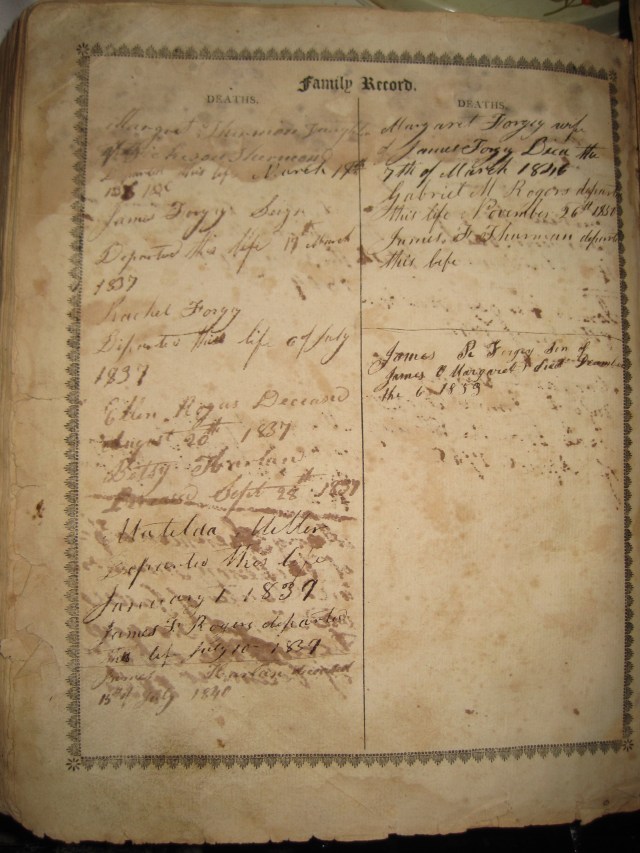 Family Record.
DEATHS.
March 19th
James Forgy
Departed this life 19th March
1837
Rachel Forgy
Departed this life of July
1837
Rogers Deceased
August 20th 1837
Betsy Harlan
Deceased Sept 28th 1837
Matilda Miller
Departed this life
January 1 1839
James F Rogers departed
this life July 10 1839
James Harlan deceased
15th of July 1840
DEATHS.
Margaret Forgey wife
of James Forgy Decd the
7th of March 1846
Gabriel M Rogers depar
this life November 26th 1850
James F Thurman depar
this life
James Forgey Son of
James & Margaret Decembe
the 6 1853